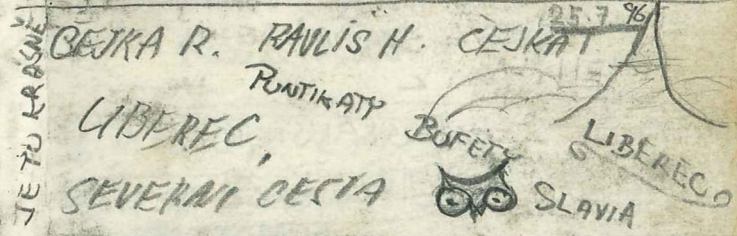 JE TU KRÁSNĚ
25.7.96
ČEJKA R. PAVLIS H. ČEJKA T
PUNTIKATY
LIBEREC,
SEVERNI CESTA
BUFETY
SLAVIA
LIBEREC